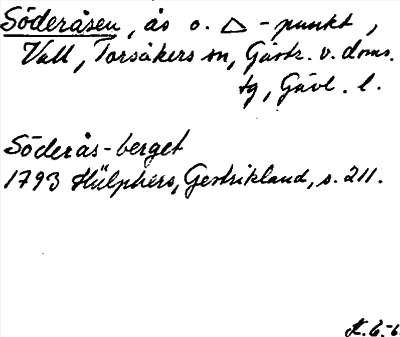 Söderåsen, ås o. △-punkt,
Vall, Torsåkers sn, Gästr. v. doms.
tg, Gävl. l.
Söderås-berget
1793 Hülphers, Gestrikland, s. 211.